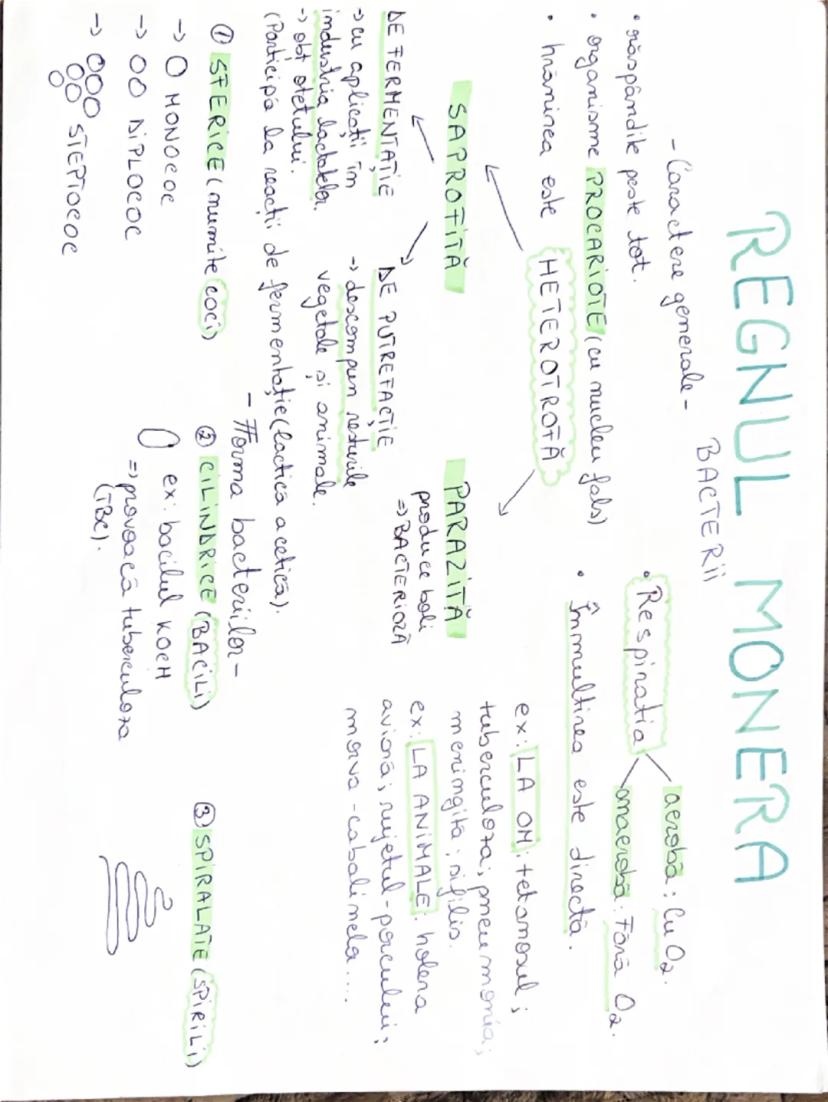 REGNUL MONERA
BACTERII
- Caractere generale -
• răspândite peste tot.
• organisme PROCARIOTE (cu nucleu fals)
• hrănirea este HETEROTROFĂ
SAPROFITĂ
DE FERMENTAȚIE
→ cu aplicații în
industria lactatelor.
→ obț oțetului.
DE PUTREFACȚIE
→ descompun resturile
vegetale și animale.
(Participă la reacții de fermentație (lactică acetică).
PARAZITĂ
produce boli
⇒ BACTERIOZĂ
• Respirația
aerobă: Cu O2.
anaerobă: Fără O2.
• Înmulțirea este directă.
ex: LA OM: tetanosul;
tuberculoza; pneumonia;
meningita; sifilis.
ex: LA ANIMALE: holera
aviară; rujetul-porcului;
morva-cabalinela....
- Forma bacteriilor -
① SFERICE (numite coci)
→ MONOCOC
→ DIPLOCOC
→ STEPTOCOC
② CILINDRICE (BACILI)
ex: bacilul KOCH
⇒ provoacă tuberculoza
(TBC).
③ SPIRALATE (SPIRILI)